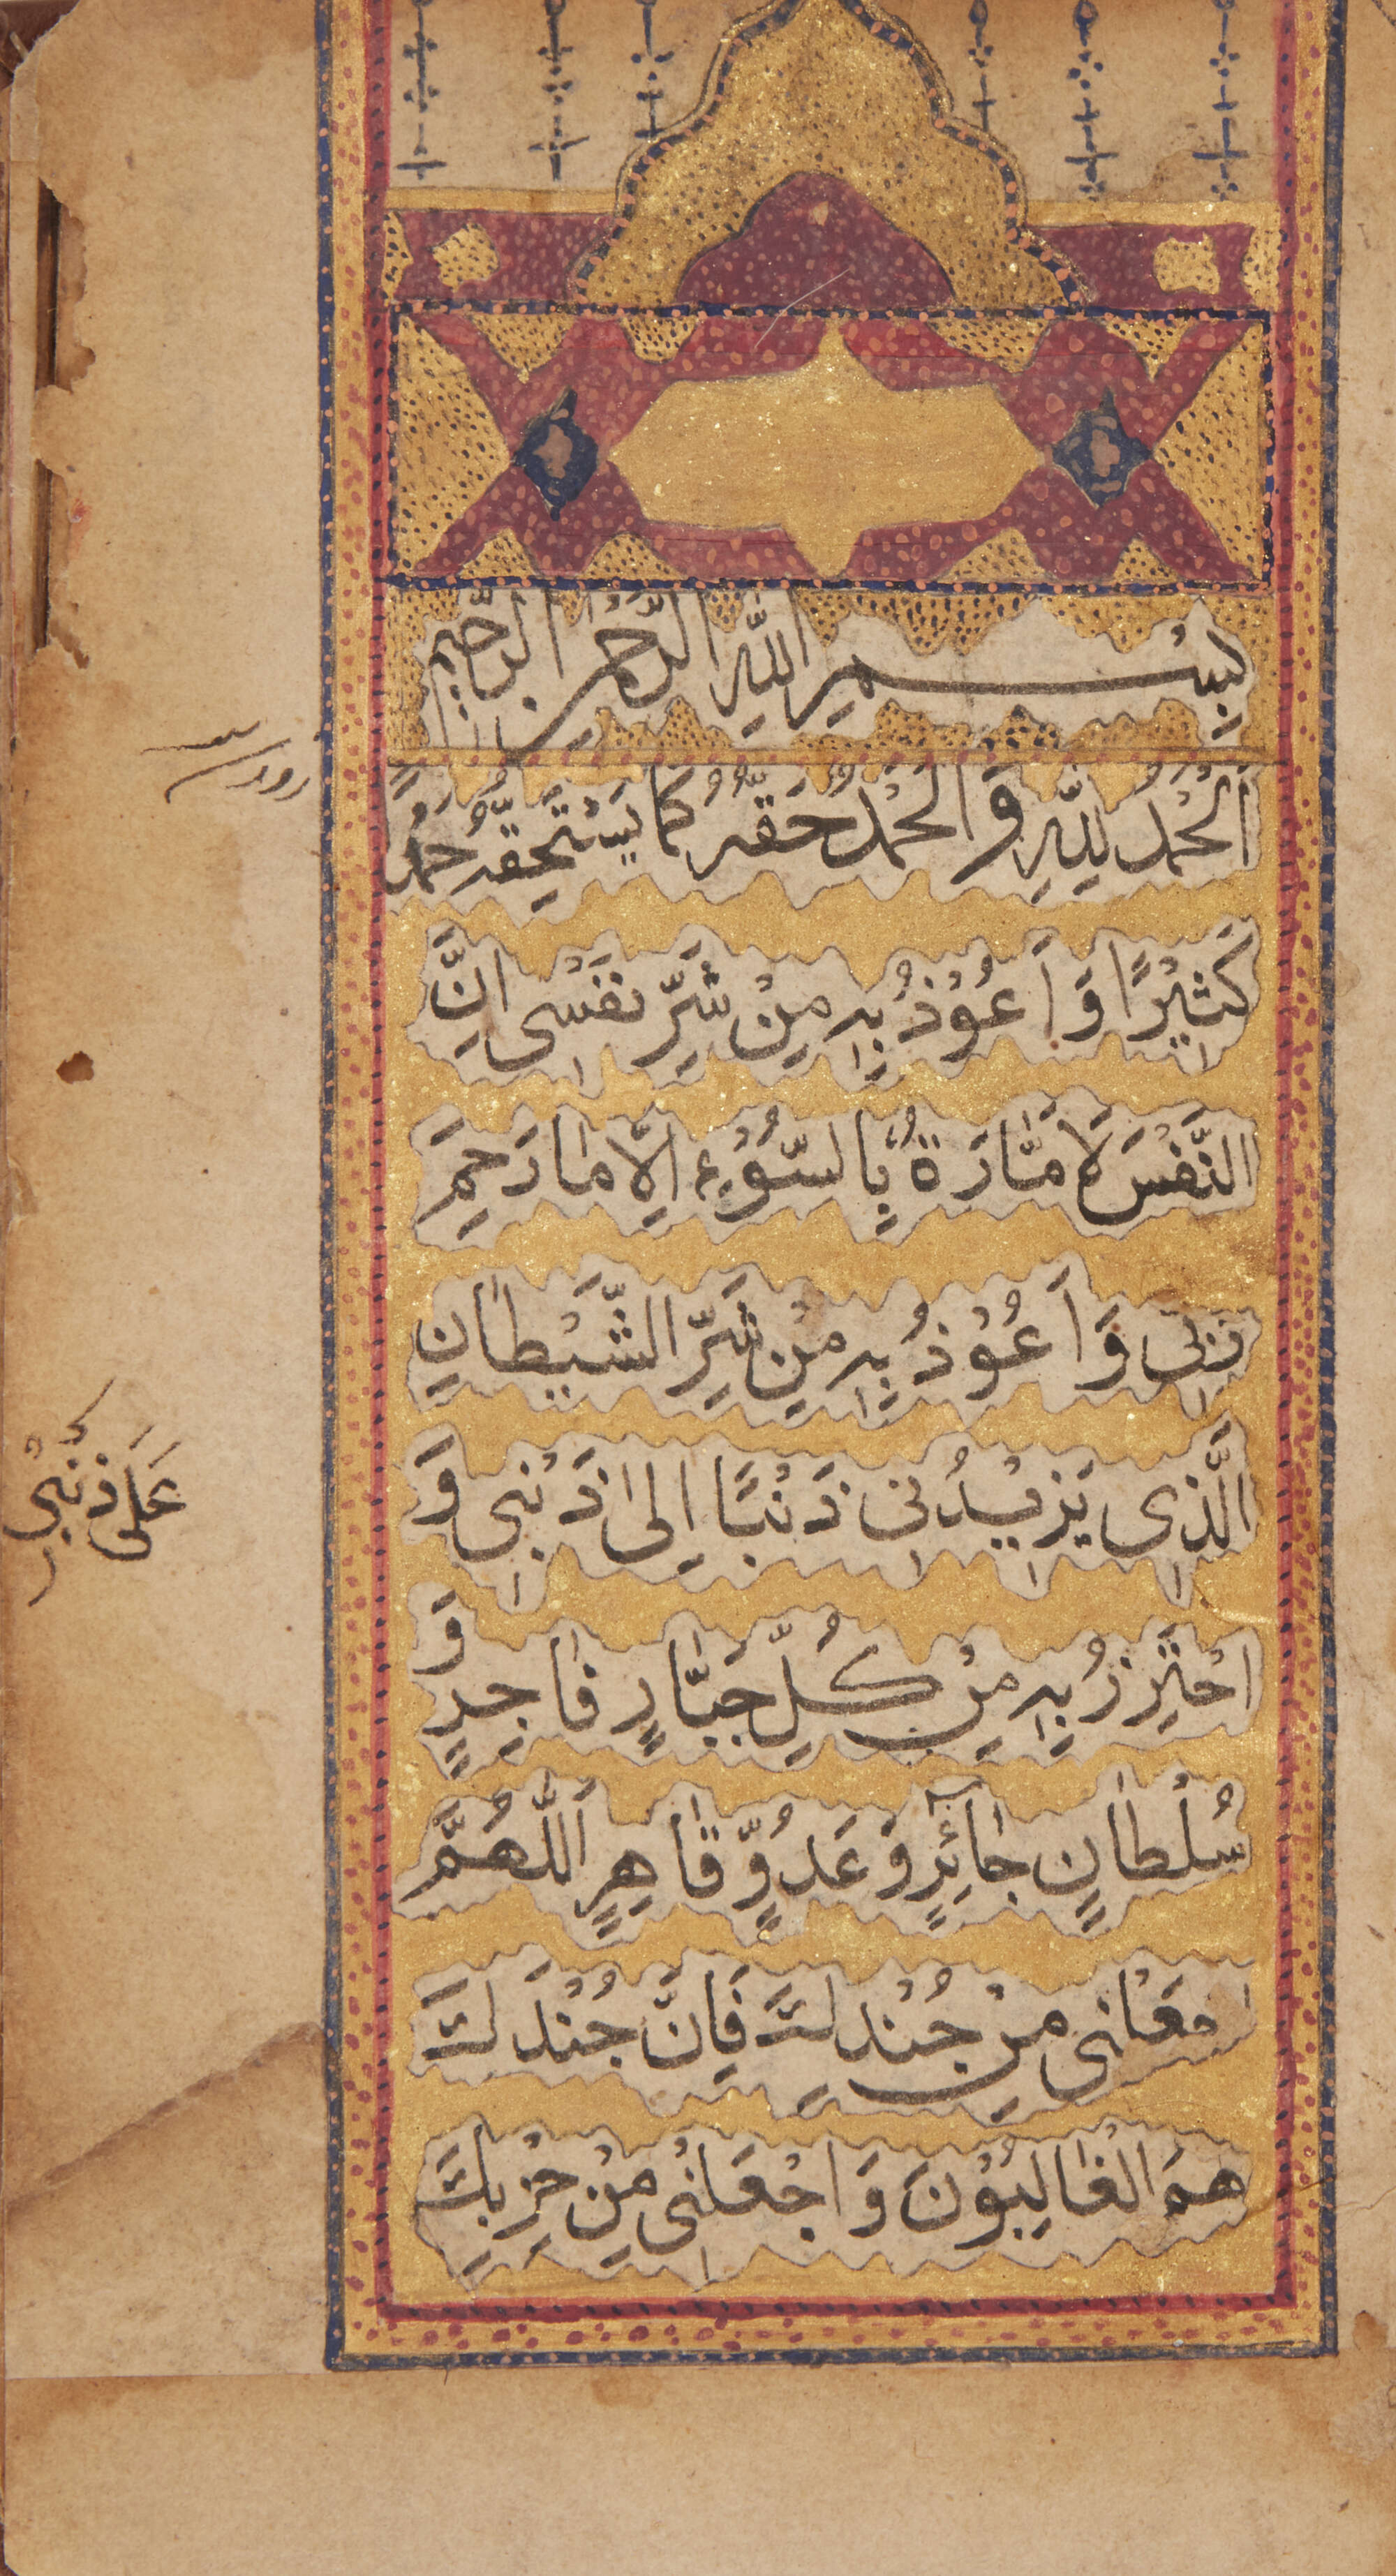 بِسْمِ اللّٰهِ الرَّحْمٰنِ الرَّحِيْمِ
اَلْحَمْدُ لِلّٰهِ وَالْحَمْدُ حَقُّهُ كَمَا يَسْتَحِقُّهُ حَمْدًا
كَثِيْرًا وَاَعُوْذُ بِهِ مِنْ شَرِّ نَفْسِى اِنَّ
النَّفْسَ لَاَمَّارَةٌ بِالسُّوْءِ اِلَّا مَا رَحِمَ
رَبِّى وَاَعُوْذُ بِهِ مِنْ شَرِّ الشَّيْطَانِ
الَّذِى يَزِيْدُنِى ذَنْبًا اِلٰى ذَنْبِى وَ
عَلَى ذَنْبِى
احْتَرِزُ بِهِ مِنْ كُلِّ جَبَّارٍ فَاجِرٍ وَ
سُلْطَانٍ جَائِرٍ وَعَدُوٍّ قَاهِرٍ اَللّٰهُمَّ
اجْعَلْنِى مِنْ جُنْدِكَ فَاِنَّ جُنْدَكَ
هُمَ الْغَالِبُوْنَ وَاجْعَلْنِى مِنْ حِزْبِكَ